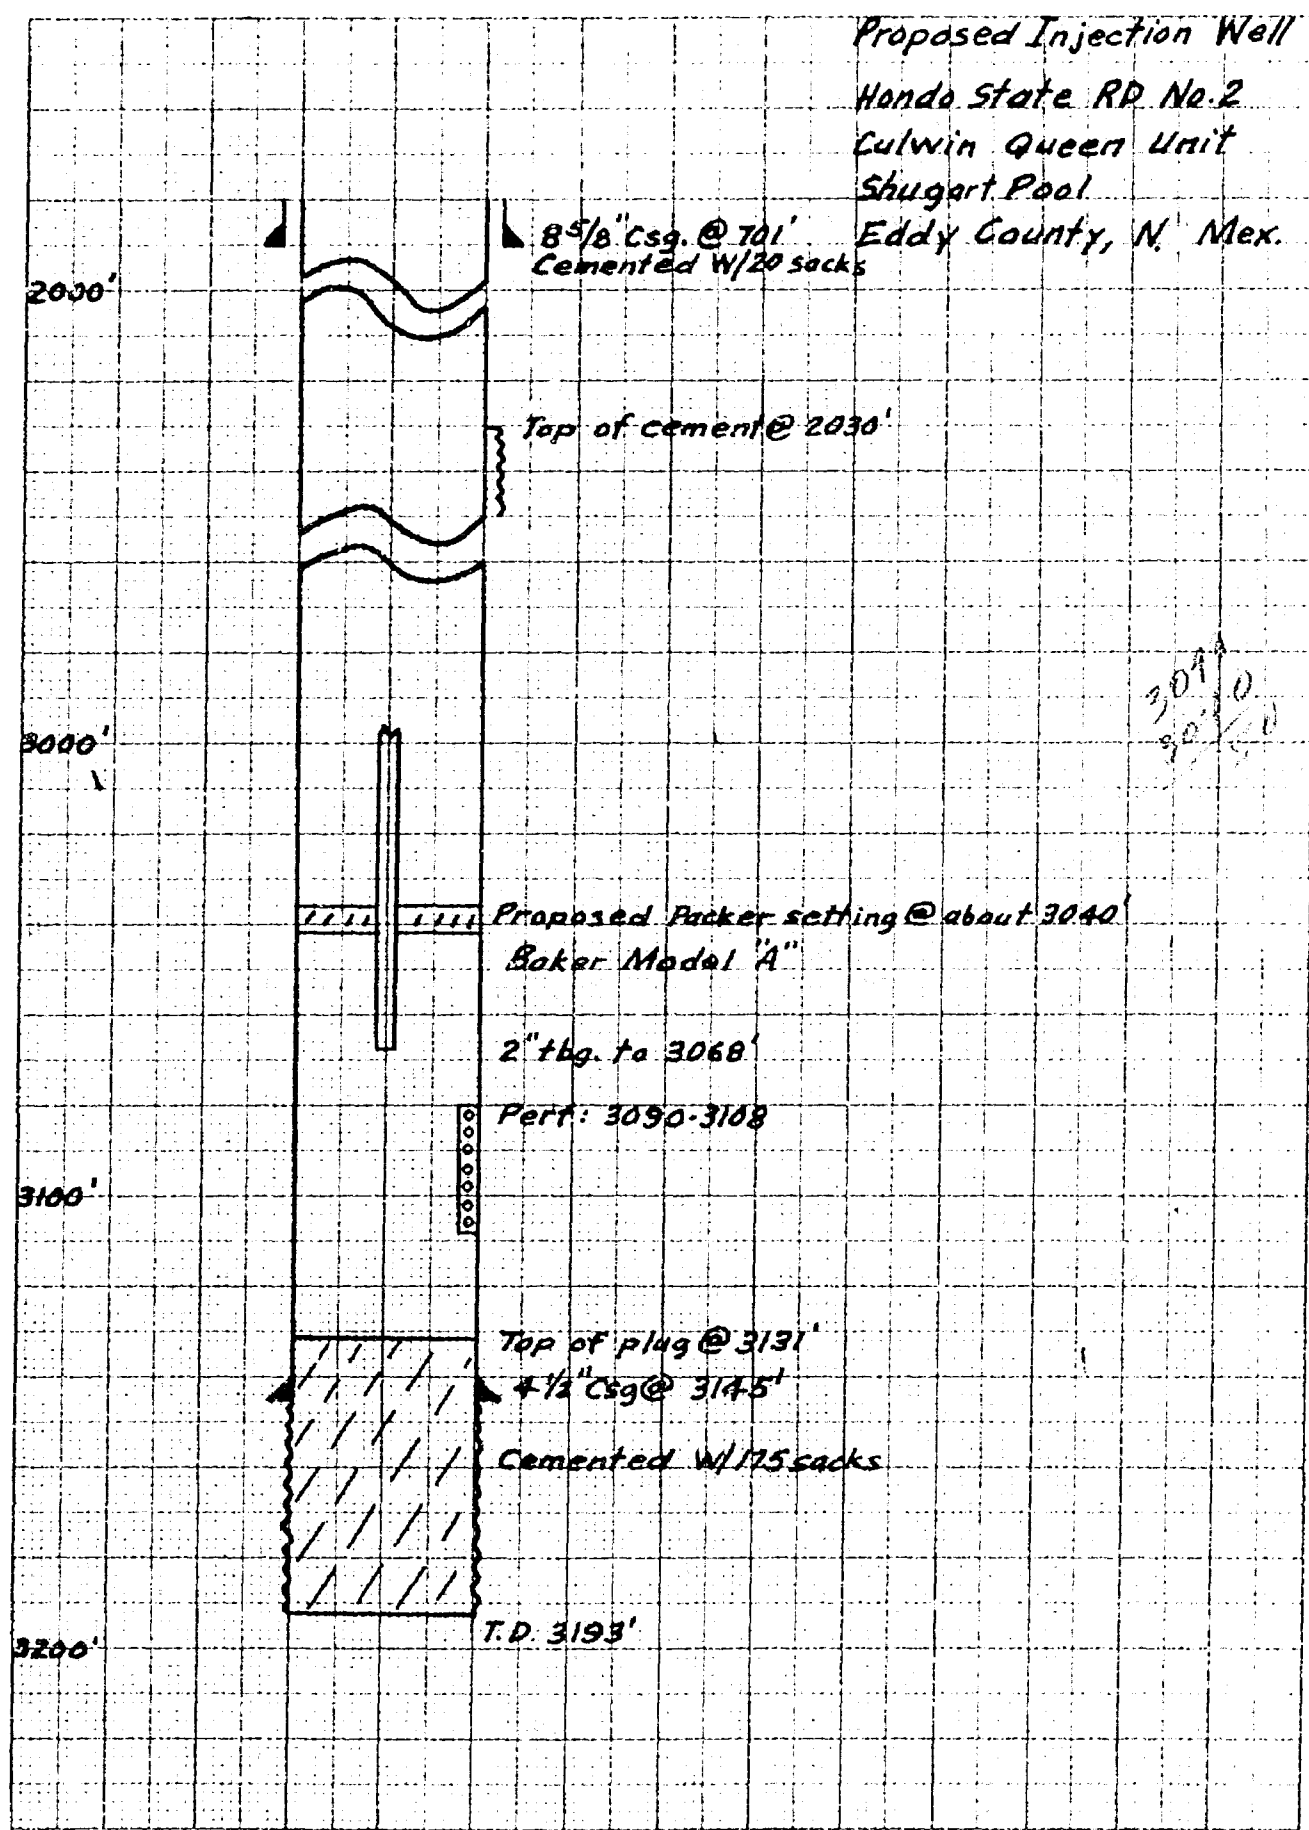 Proposed Injection Well
Hondo State RD No. 2
Culwin Queen Unit
Shugart Pool
Eddy County, N. Mex.
8 5/8" Csg. @ 701'
Cemented W/20 sacks
2000'
Top of cement @ 2030'
3000'
Proposed Packer setting @ about 3040'
Baker Model "A"
2" tbg. to 3068'
Perf: 3090-3108
3100'
Top of plug @ 3131'
4 1/2" Csg @ 3145'
Cemented W/175 sacks
T.D. 3193'
3200'